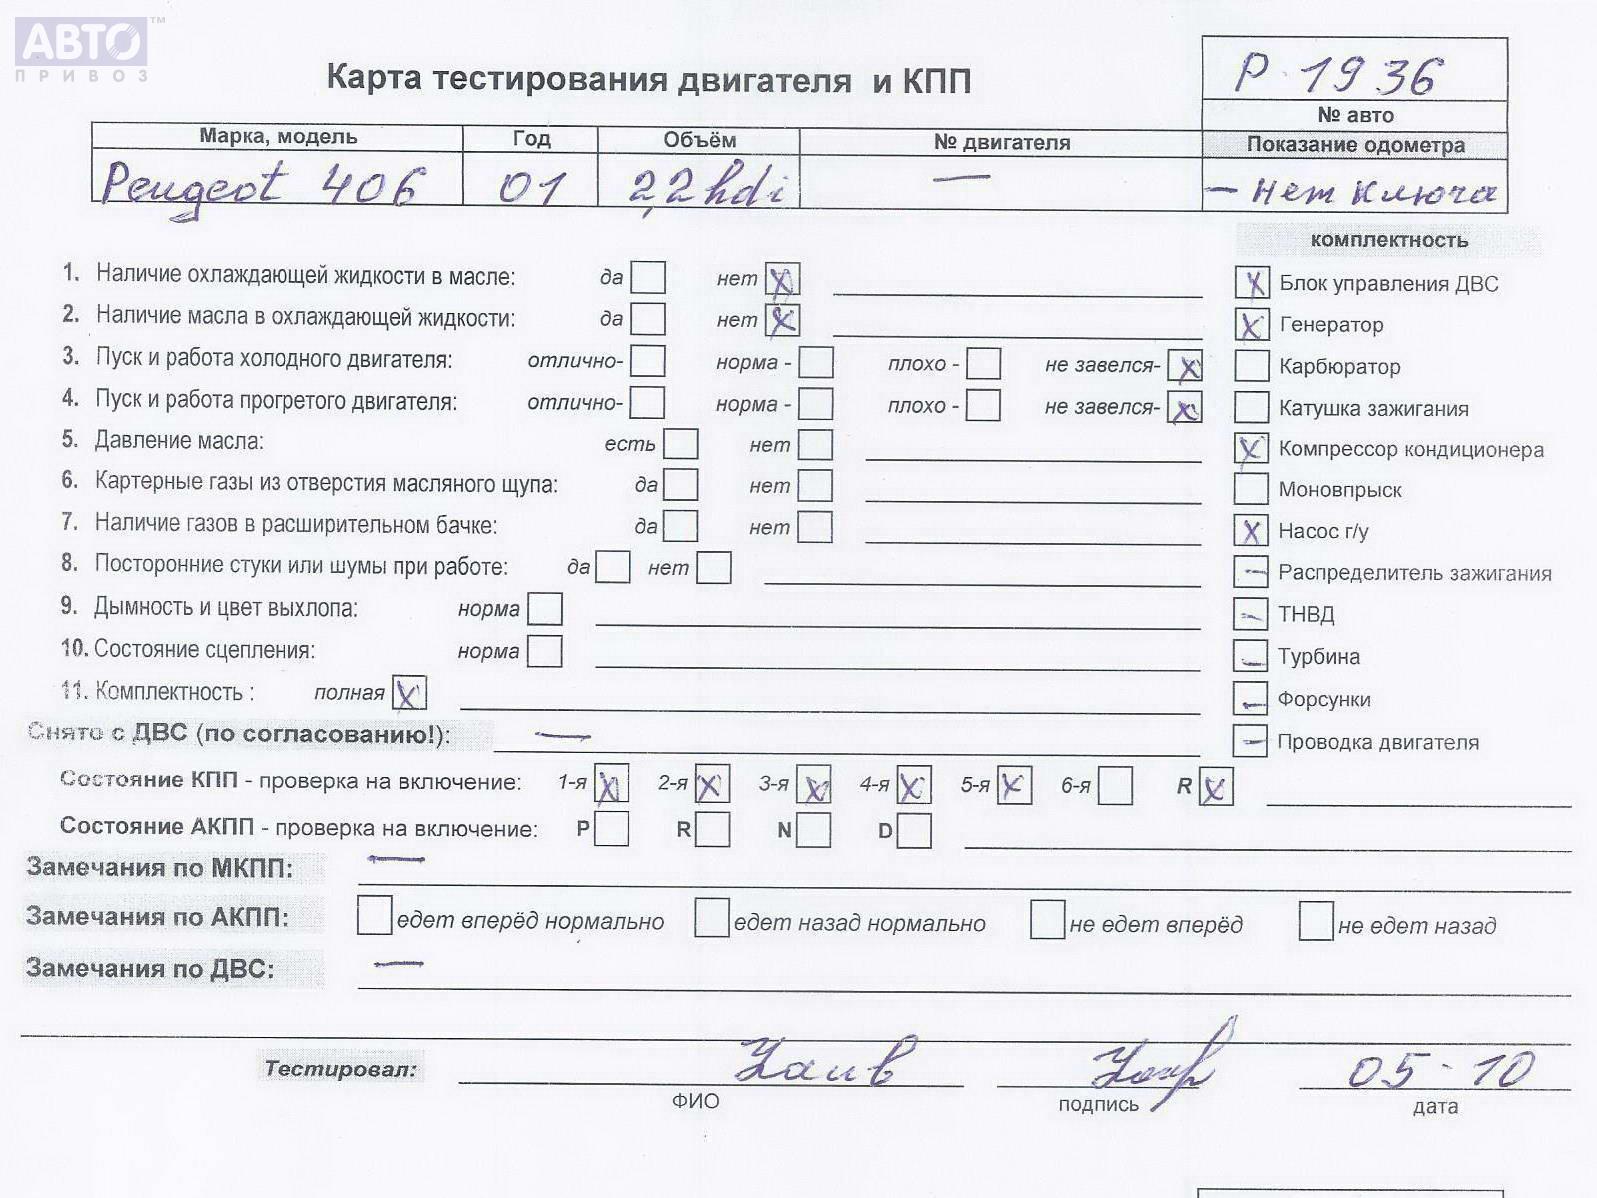 АВТО™
ПРИВОЗ
Р-1936
№ авто
Карта тестирования двигателя и КПП
Марка, модель Год Объём № двигателя Показание одометра
Peugeot 406 01 2,2hdi — - Нет ключа
комплектность
1. Наличие охлаждающей жидкости в масле: да нет X
Блок управления ДВС X
2. Наличие масла в охлаждающей жидкости: да нет X
Генератор X
3. Пуск и работа холодного двигателя: отлично- норма - плохо - не завелся- X
Карбюратор
4. Пуск и работа прогретого двигателя: отлично- норма - плохо - не завелся- X
Катушка зажигания
5. Давление масла: есть нет
X Компрессор кондиционера
6. Картерные газы из отверстия масляного щупа: да нет
Моновпрыск
7. Наличие газов в расширительном бачке: да нет
X Насос г/у
8. Посторонние стуки или шумы при работе: да нет
— Распределитель зажигания
9. Дымность и цвет выхлопа: норма
— ТНВД
10. Состояние сцепления: норма
— Турбина
11. Комплектность : полная X
— Форсунки
Снято с ДВС (по согласованию!): —
— Проводка двигателя
Состояние КПП - проверка на включение: 1-я X 2-я X 3-я X 4-я X 5-я X 6-я R X
Состояние АКПП - проверка на включение: P R N D
Замечания по МКПП: —
Замечания по АКПП: едет вперёд нормально едет назад нормально не едет вперёд не едет назад
Замечания по ДВС: —
Тестировал: 05-10
ФИО подпись дата